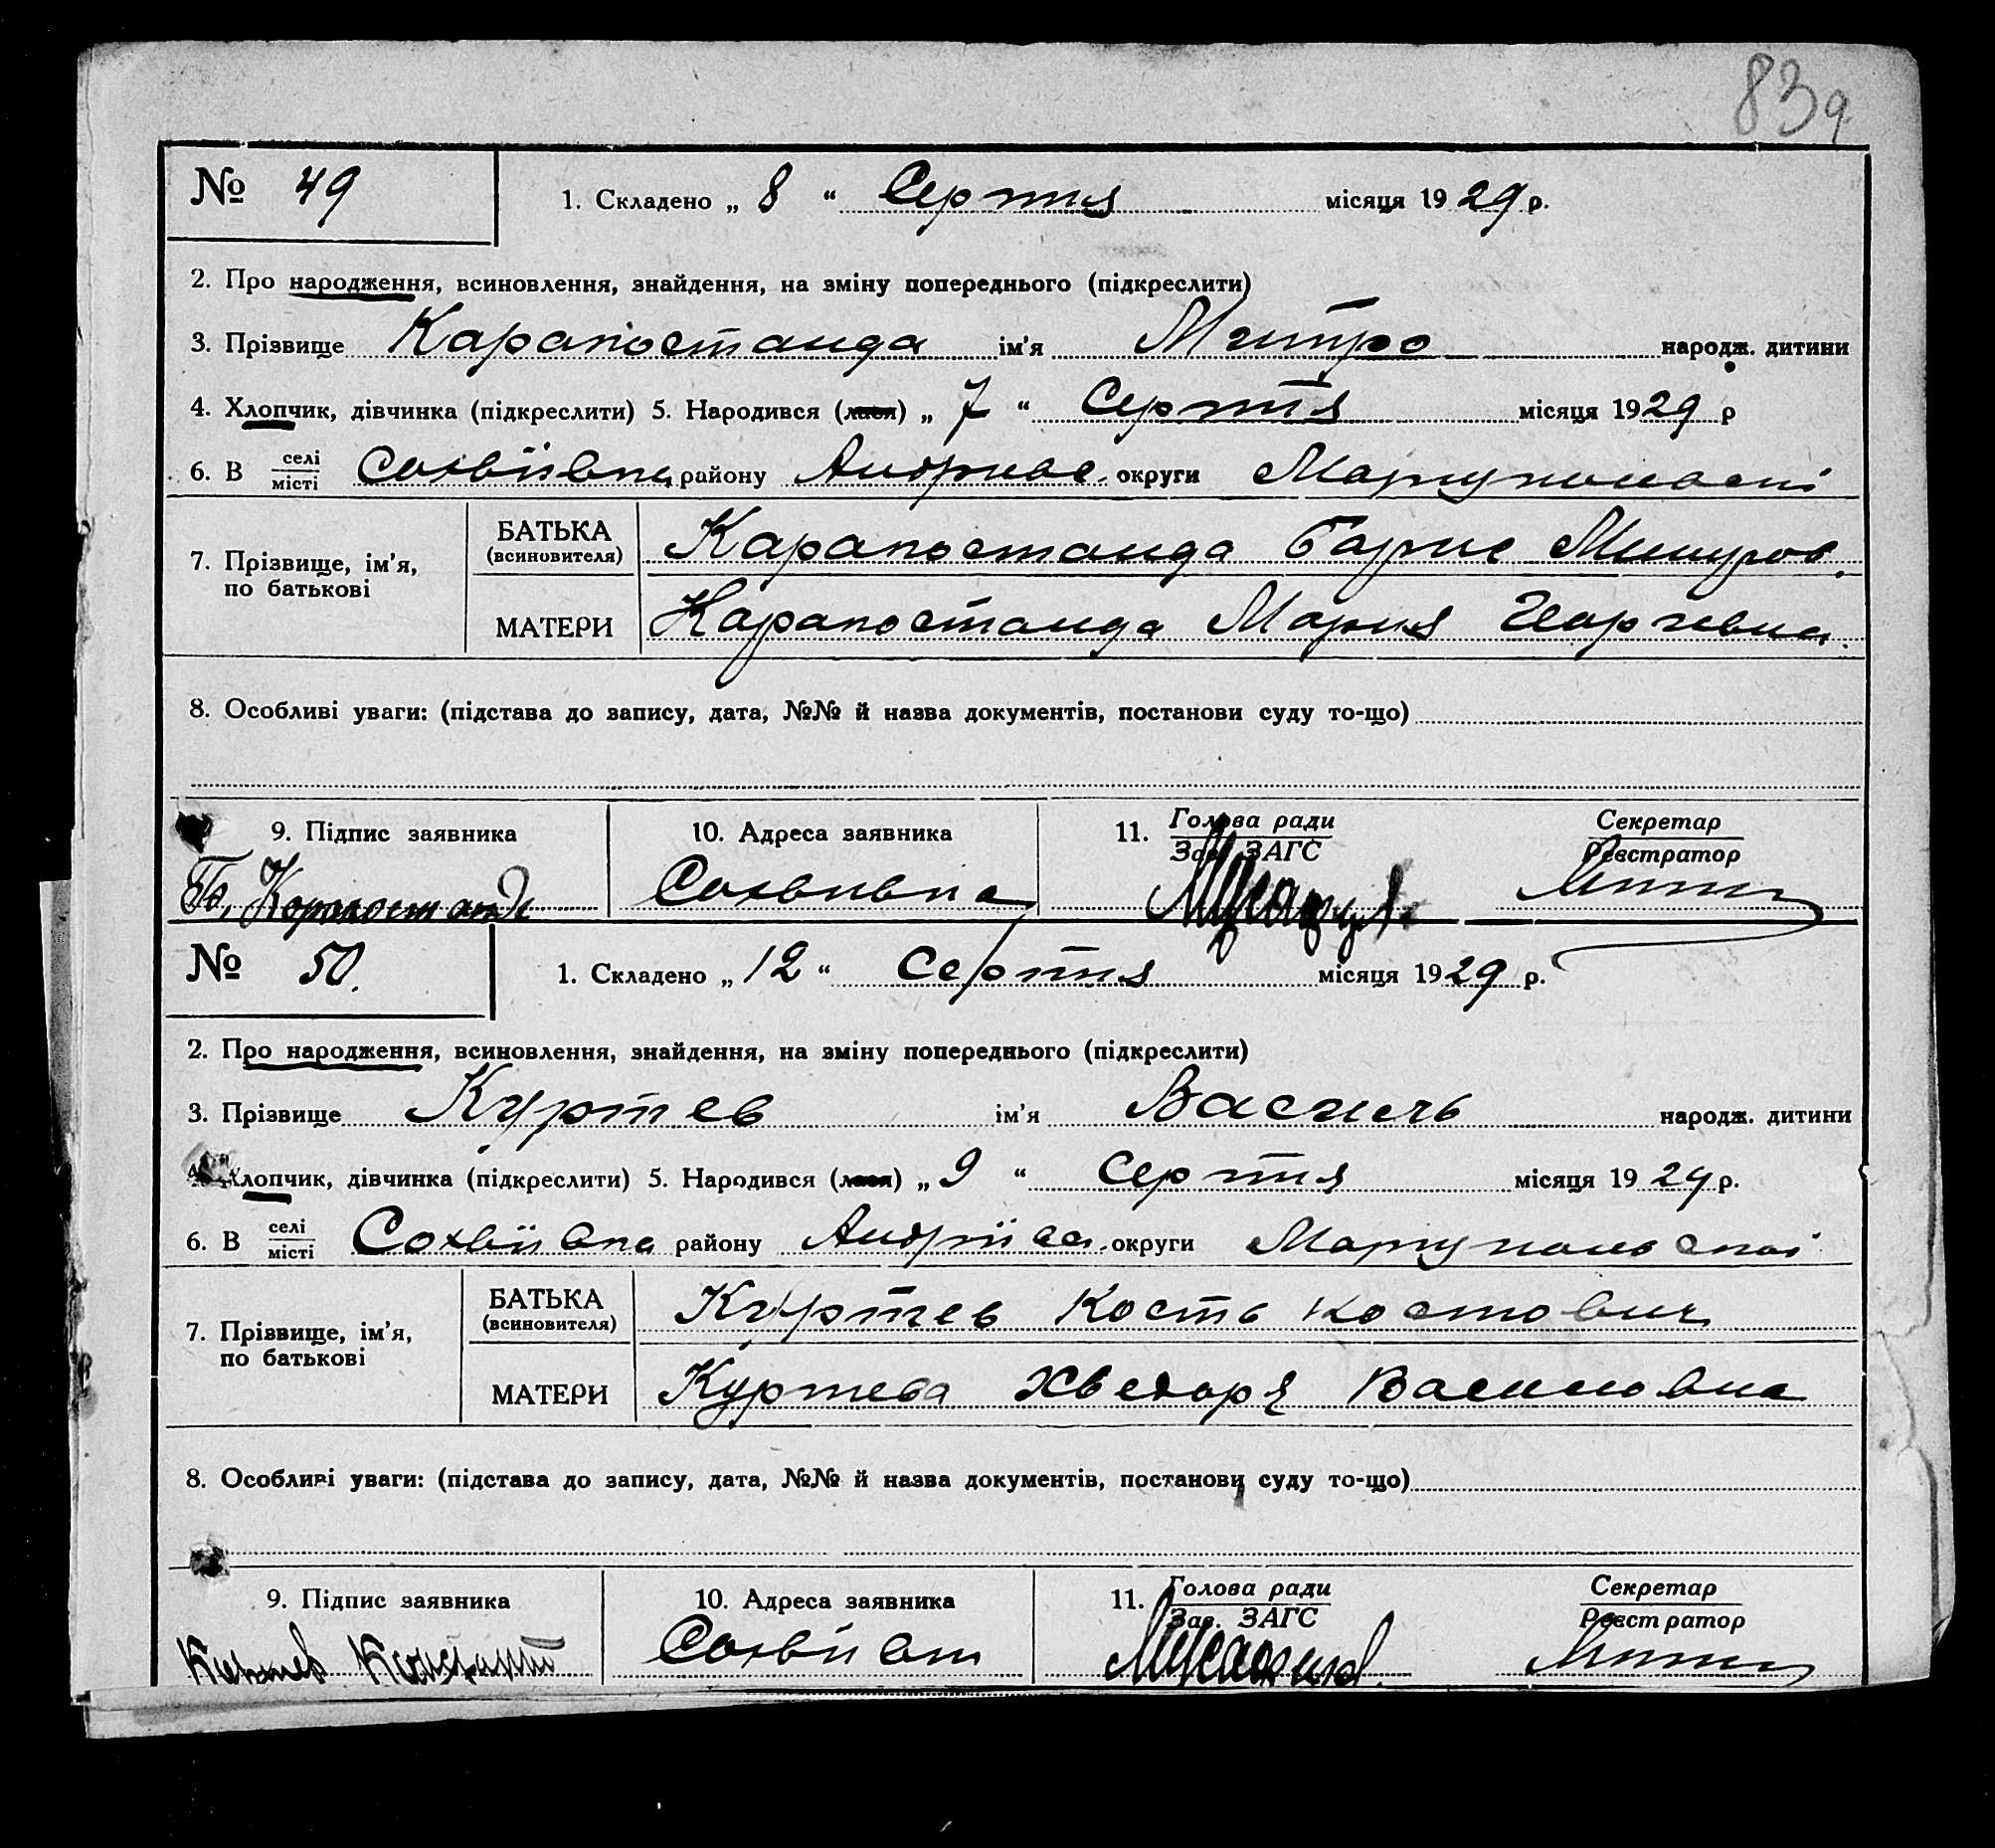 83а
№ 49
1. Складено „ 8 “ Серпня місяця 1929 р.
2. Про народження, всиновлення, знайдення, на зміну попереднього (підкреслити)
3. Прізвище Карапостанда ім'я Митро народж. дитини
4. Хлопчик, дівчинка (підкреслити) 5. Народився (лася) „ 7 “ Серпня місяця 1929 р
6. В селі місті Сохвіївка району Андриевс. округи Мариупольскі
7. Прізвище, ім'я, по батькові
БАТЬКА (всиновителя) Карапостанда Барис Митров.
МАТЕРИ Карапостанда Мария Георгевна.
8. Особливі уваги: (підстава до запису, дата, №№ й назва документів, постанови суду то-що)
9. Підпис заявника
10. Адреса заявника
11. Голова ради Зав. ЗАГС
Секретар Реєстратор
Сохвивка
№ 50.
1. Складено „ 12 “ Серпня місяця 1929 р.
2. Про народження, всиновлення, знайдення, на зміну попереднього (підкреслити)
3. Прізвище Куртев ім'я Василь народж. дитини
4. Хлопчик, дівчинка (підкреслити) 5. Народився (лася) „ 9 “ Серпня місяця 1929 р.
6. В селі місті Сохвіївка району Андріївс. округи Мариупольскої
7. Прізвище, ім'я, по батькові
БАТЬКА (всиновителя) Куртев Кость Костович
МАТЕРИ Куртева Хведора Василовна
8. Особливі уваги: (підстава до запису, дата, №№ й назва документів, постанови суду то-що)
9. Підпис заявника
10. Адреса заявника
11. Голова ради Зав. ЗАГС
Секретар Реєстратор
Куртев Констант